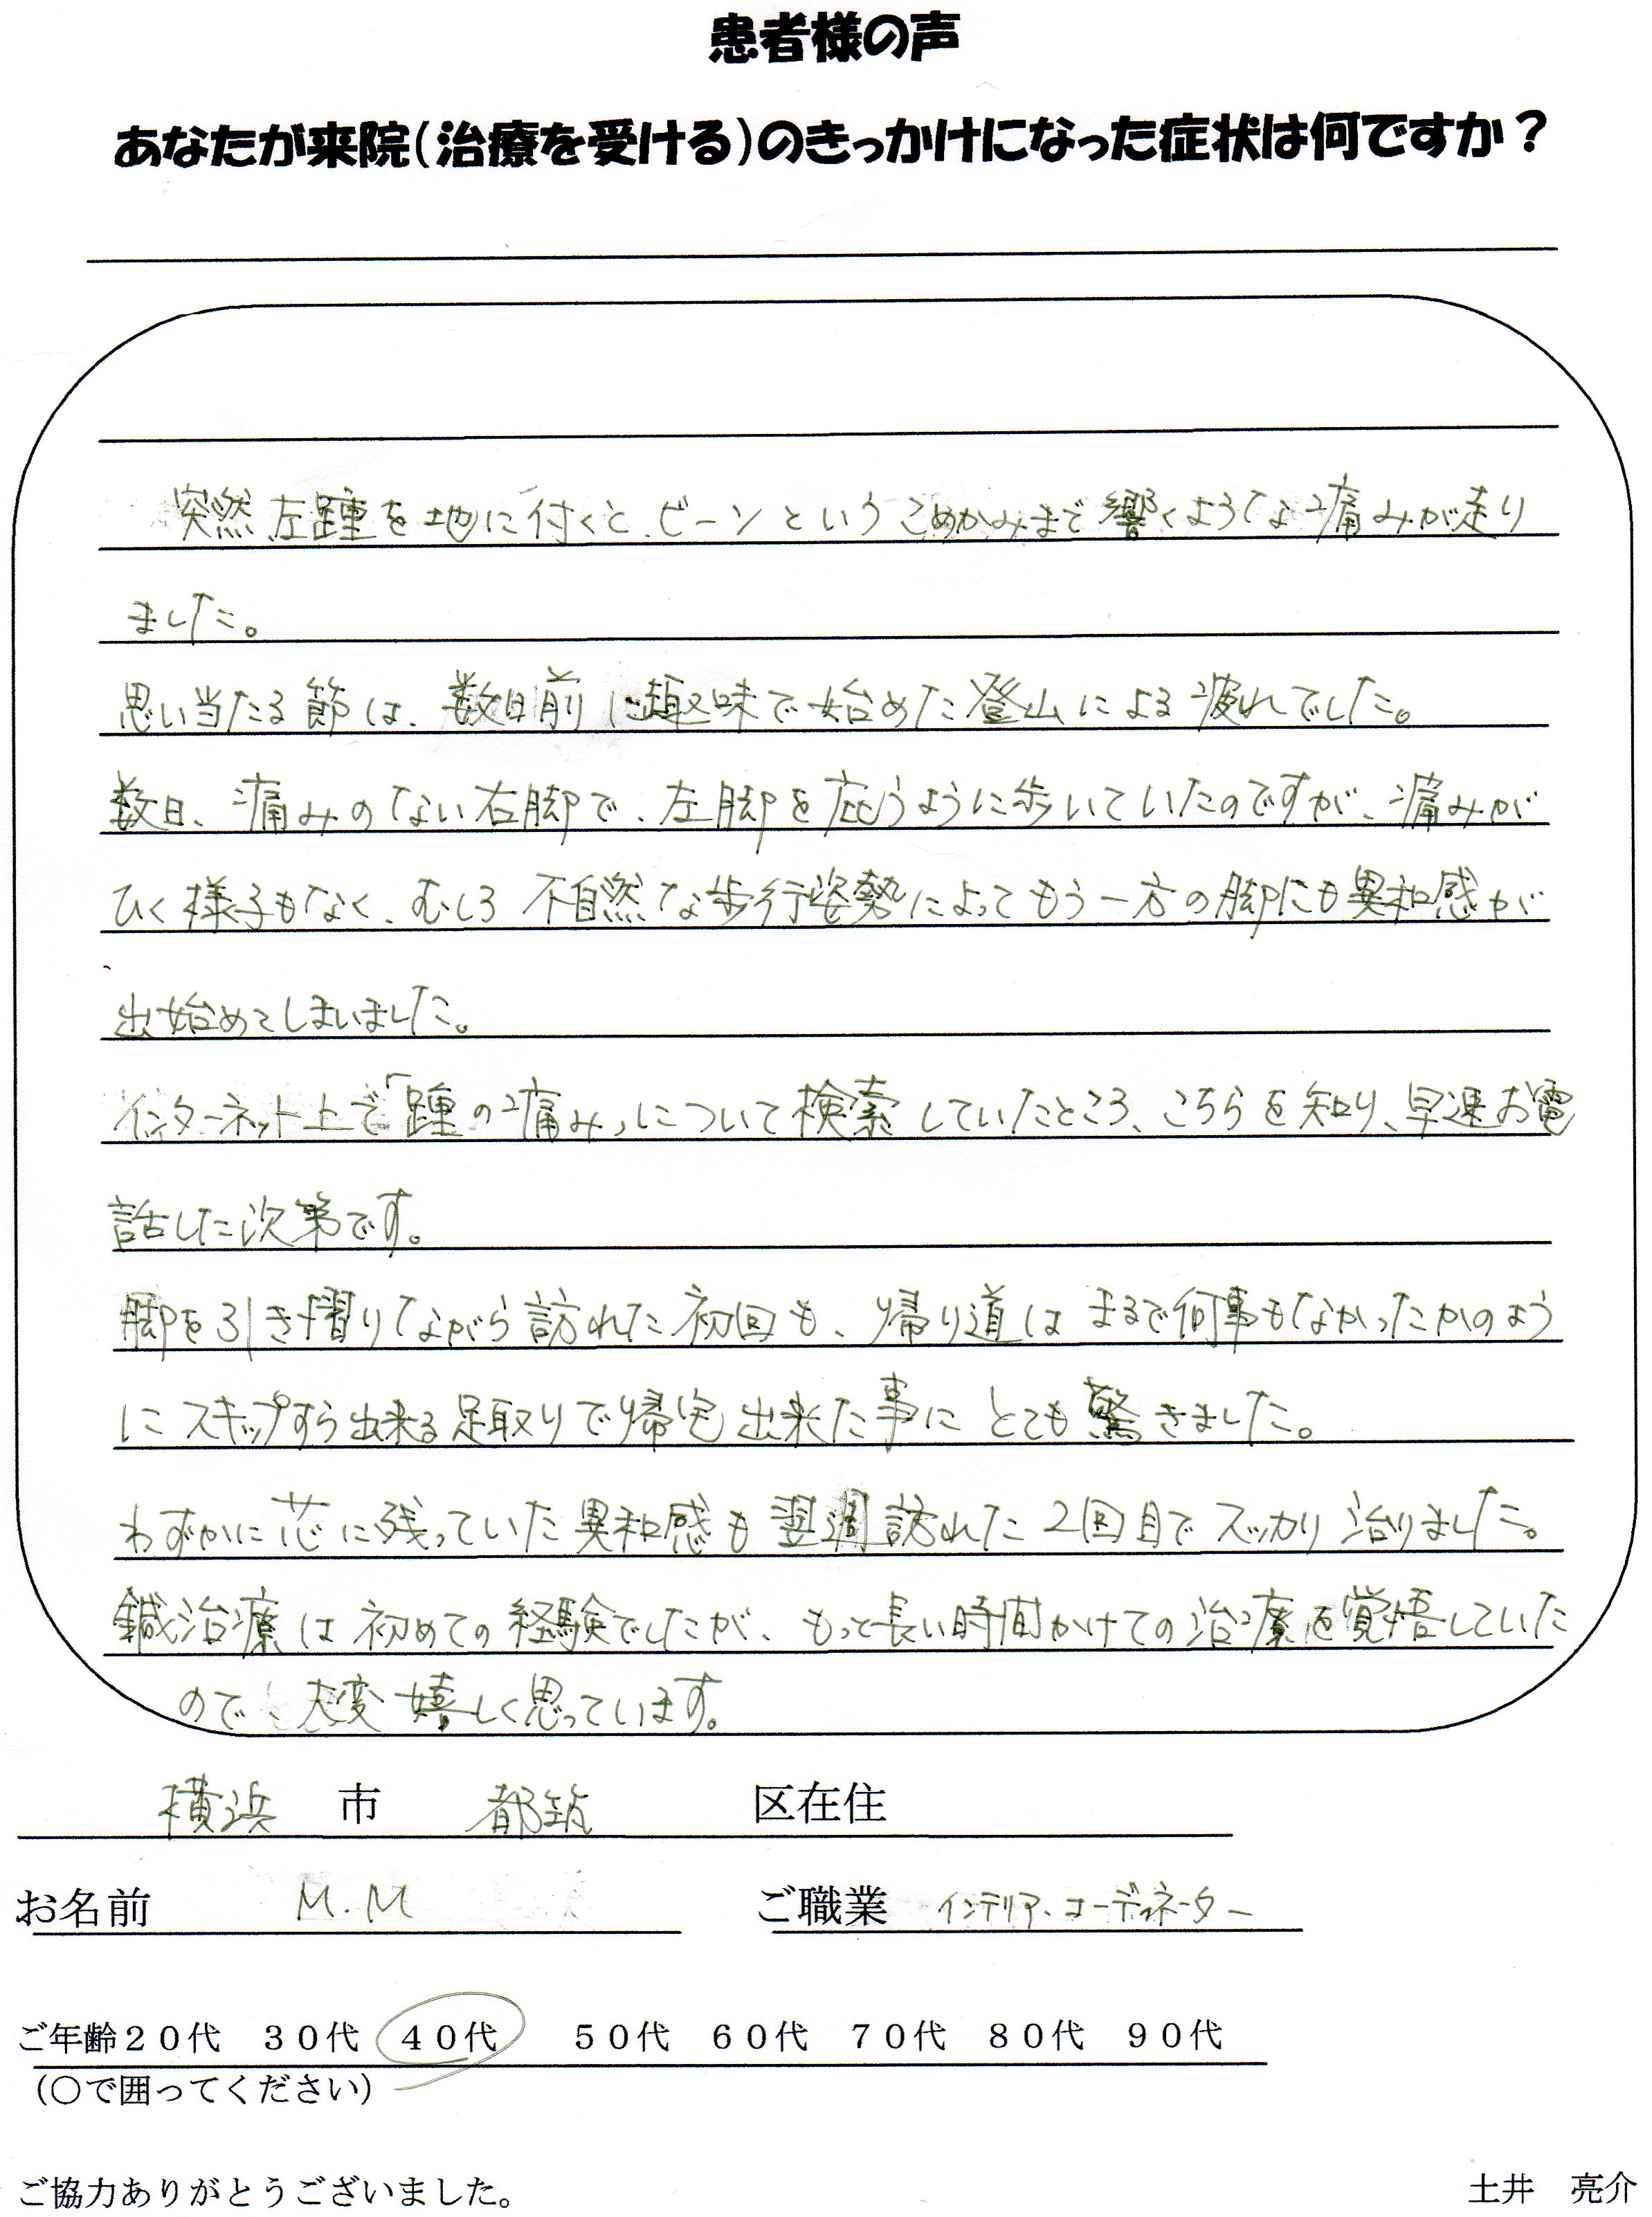 患者様の声
あなたが来院（治療を受ける）のきっかけになった症状は何ですか？
突然左踵を地に付くと、ビーンというこめかみまで響くような痛みが走り
ました。
思い当たる節は、数日前に趣味で始めた登山による疲れでした。
数日、痛みのない右脚で、左脚を庇うように歩いていたのですが、痛みが
ひく様子もなく、むしろ不自然な歩行姿勢によってもう一方の脚にも異和感が
出始めてしまいました。
インターネット上で「踵の痛み」について検索していたところ、こちらを知り、早速お電
話した次第です。
脚を引き摺りながら訪れた初回も、帰り道はまるで何事もなかったかのよう
にスキップすら出来る足取りで帰宅出来た事にとても驚きました。
わずかに芯に残っていた異和感も翌週訪れた2回目でスッカリ治りました。
鍼治療は初めての経験でしたが、もっと長い時間かけての治療を覚悟していた
ので、大変嬉しく思っています。
横浜 市 都筑 区在住
お名前 M.M ご職業 インテリア・コーディネーター
ご年齢２０代 ３０代 ４０代 ５０代 ６０代 ７０代 ８０代 ９０代
（○で囲ってください）
ご協力ありがとうございました。 土井 亮介